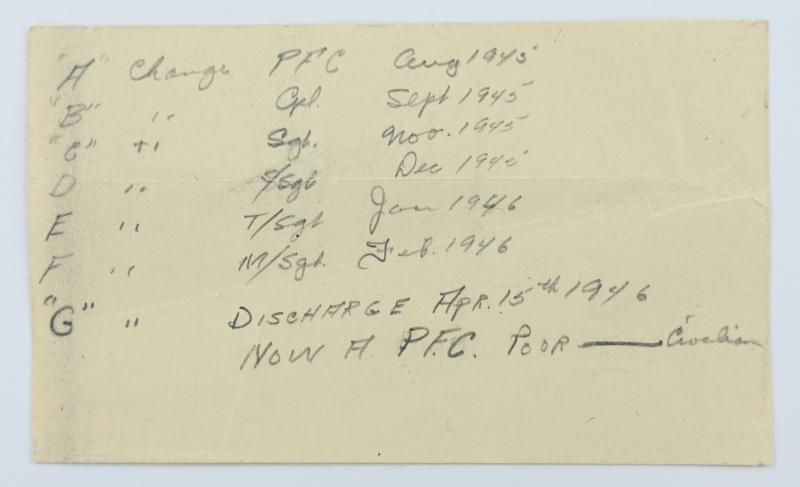 "A" Change PFC Aug 1945
"B" " Cpl. Sept 1945
"C" " Sgt. Nov. 1945
D " S/Sgt Dec 1945
E " T/Sgt Jan 1946
F " M/Sgt. Feb. 1946
"G" " DISCHARGE APR. 15th 1946
NOW A P.F.C. POOR — Civilian